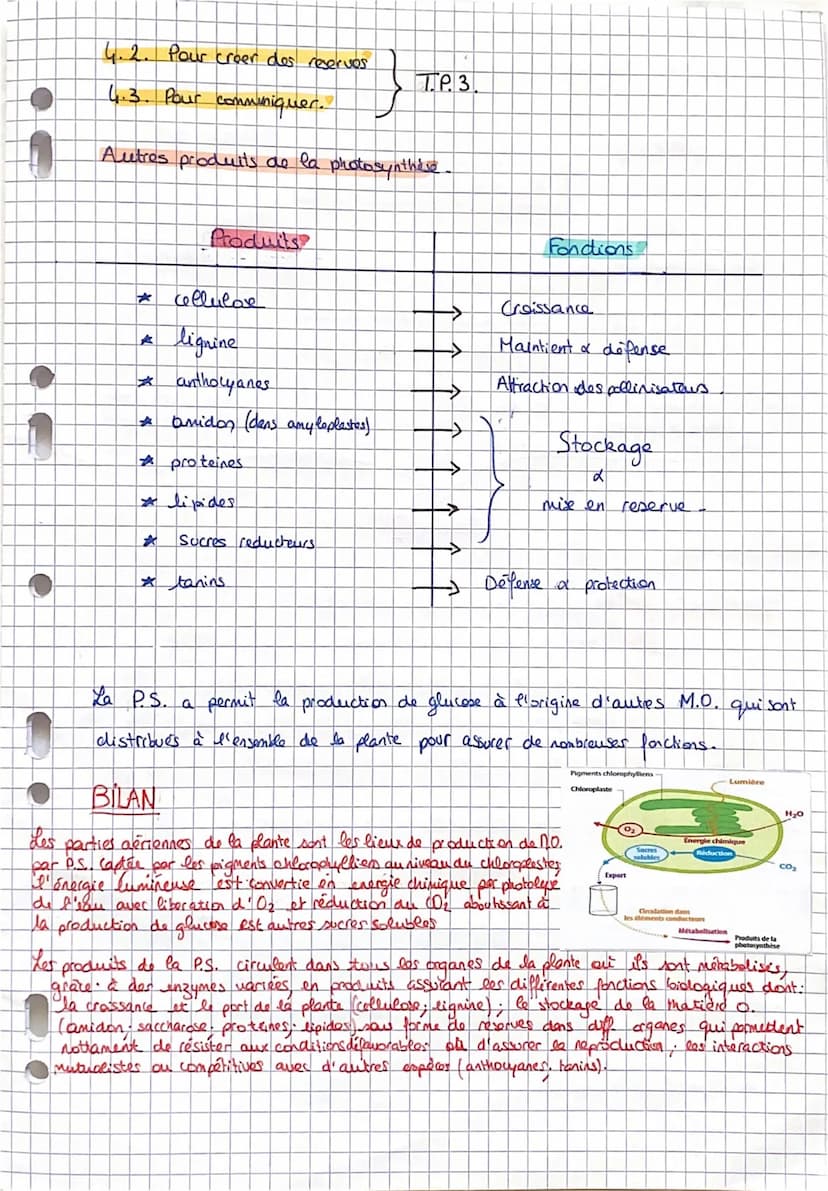 4.2. Pour creer des reserves
4.3. Pour communiquer.
T.P.3.
Autres produits de la photosynthèse.
Produits
Fonctions
* cellulose → Croissance
* lignine → Maintient & défense
* anthocyanes → Attraction des pollinisateurs.
* amidon (dans amyloplastes) →
* proteines →
* lipides →
* Sucres reducteurs →
Stockage
&
mise en reserve -
* tanins → Défense & protection
La P.S. a permit la production de glucose à l'origine d'autres M.O. qui sont
distribués à l'ensemble de la plante pour assurer de nombreuses fonctions.
BILAN
Les parties aériennes de la plante sont les lieux de production de M.O.
par P.S. Captée par les pigments chlorophylliens au niveau du chloroplastes,
l'énergie lumineuse est convertie en energie chimique par photolyse
de l'eau avec liberation d'O2 et réduction du CO2 aboutissant à
la production de glucose est autres sucres solubles
Pigments chlorophylliens
Chloroplaste
Lumière
H₂O
O₂
Energie chimique
Sucres
solubles
Réduction
CO₂
Export
Circulation dans
les éléments conducteurs
Métabolisation
Produits de la
photosynthèse
Les produits de la P.S. circulent dans tous les organes de la plante où ils sont métabolisés,
grâce à des enzymes variées, en produits assurant les différentes fonctions biologiques dont:
la croissance et le port de la plante (cellulose; lignine); le stockage de la matière o.
(amidon; saccharose; proteines; lipides) sous forme de réserves dans diff organes qui permettent
nottament de résister aux conditions défavorables ou d'assurer la reproduction; les interactions
mutualistes ou compétitives avec d'autres espèces (anthocyanes, tanins).